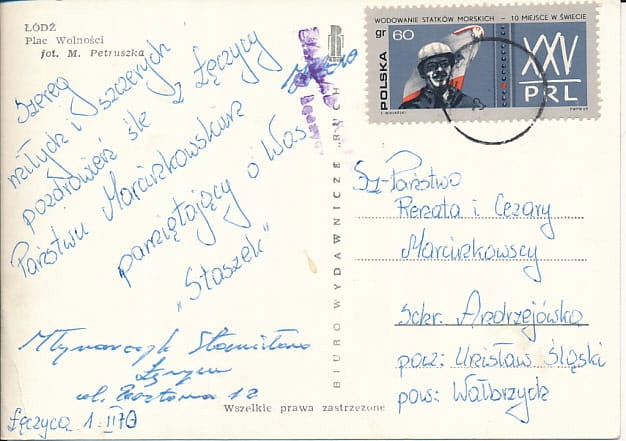 ŁÓDŹ
Plac Wolności
fot. M. Petruszka
Szereg
miłych i szczerych
pozdrowień śle z Łęczycy
Państwu Marciszkowskim
pamiętający o Was
„Staszek"
Młynarczyk Stanisław
Łęczyca
ul. 12
Łęczyca 1.II70
BIURO WYDAWNICZE „RUCH"
Wszelkie prawa zastrzeżone
WODOWANIE STATKÓW MORSKICH - 10 MIEJSCE W ŚWIECIE
gr 60
POLSKA
XXV
PRL
Sz-Państwo
Renata i Cezary
Marciszkowscy
Schr. Andrzejówka
pocz: Unisław Śląski
pow: Wałbrzych